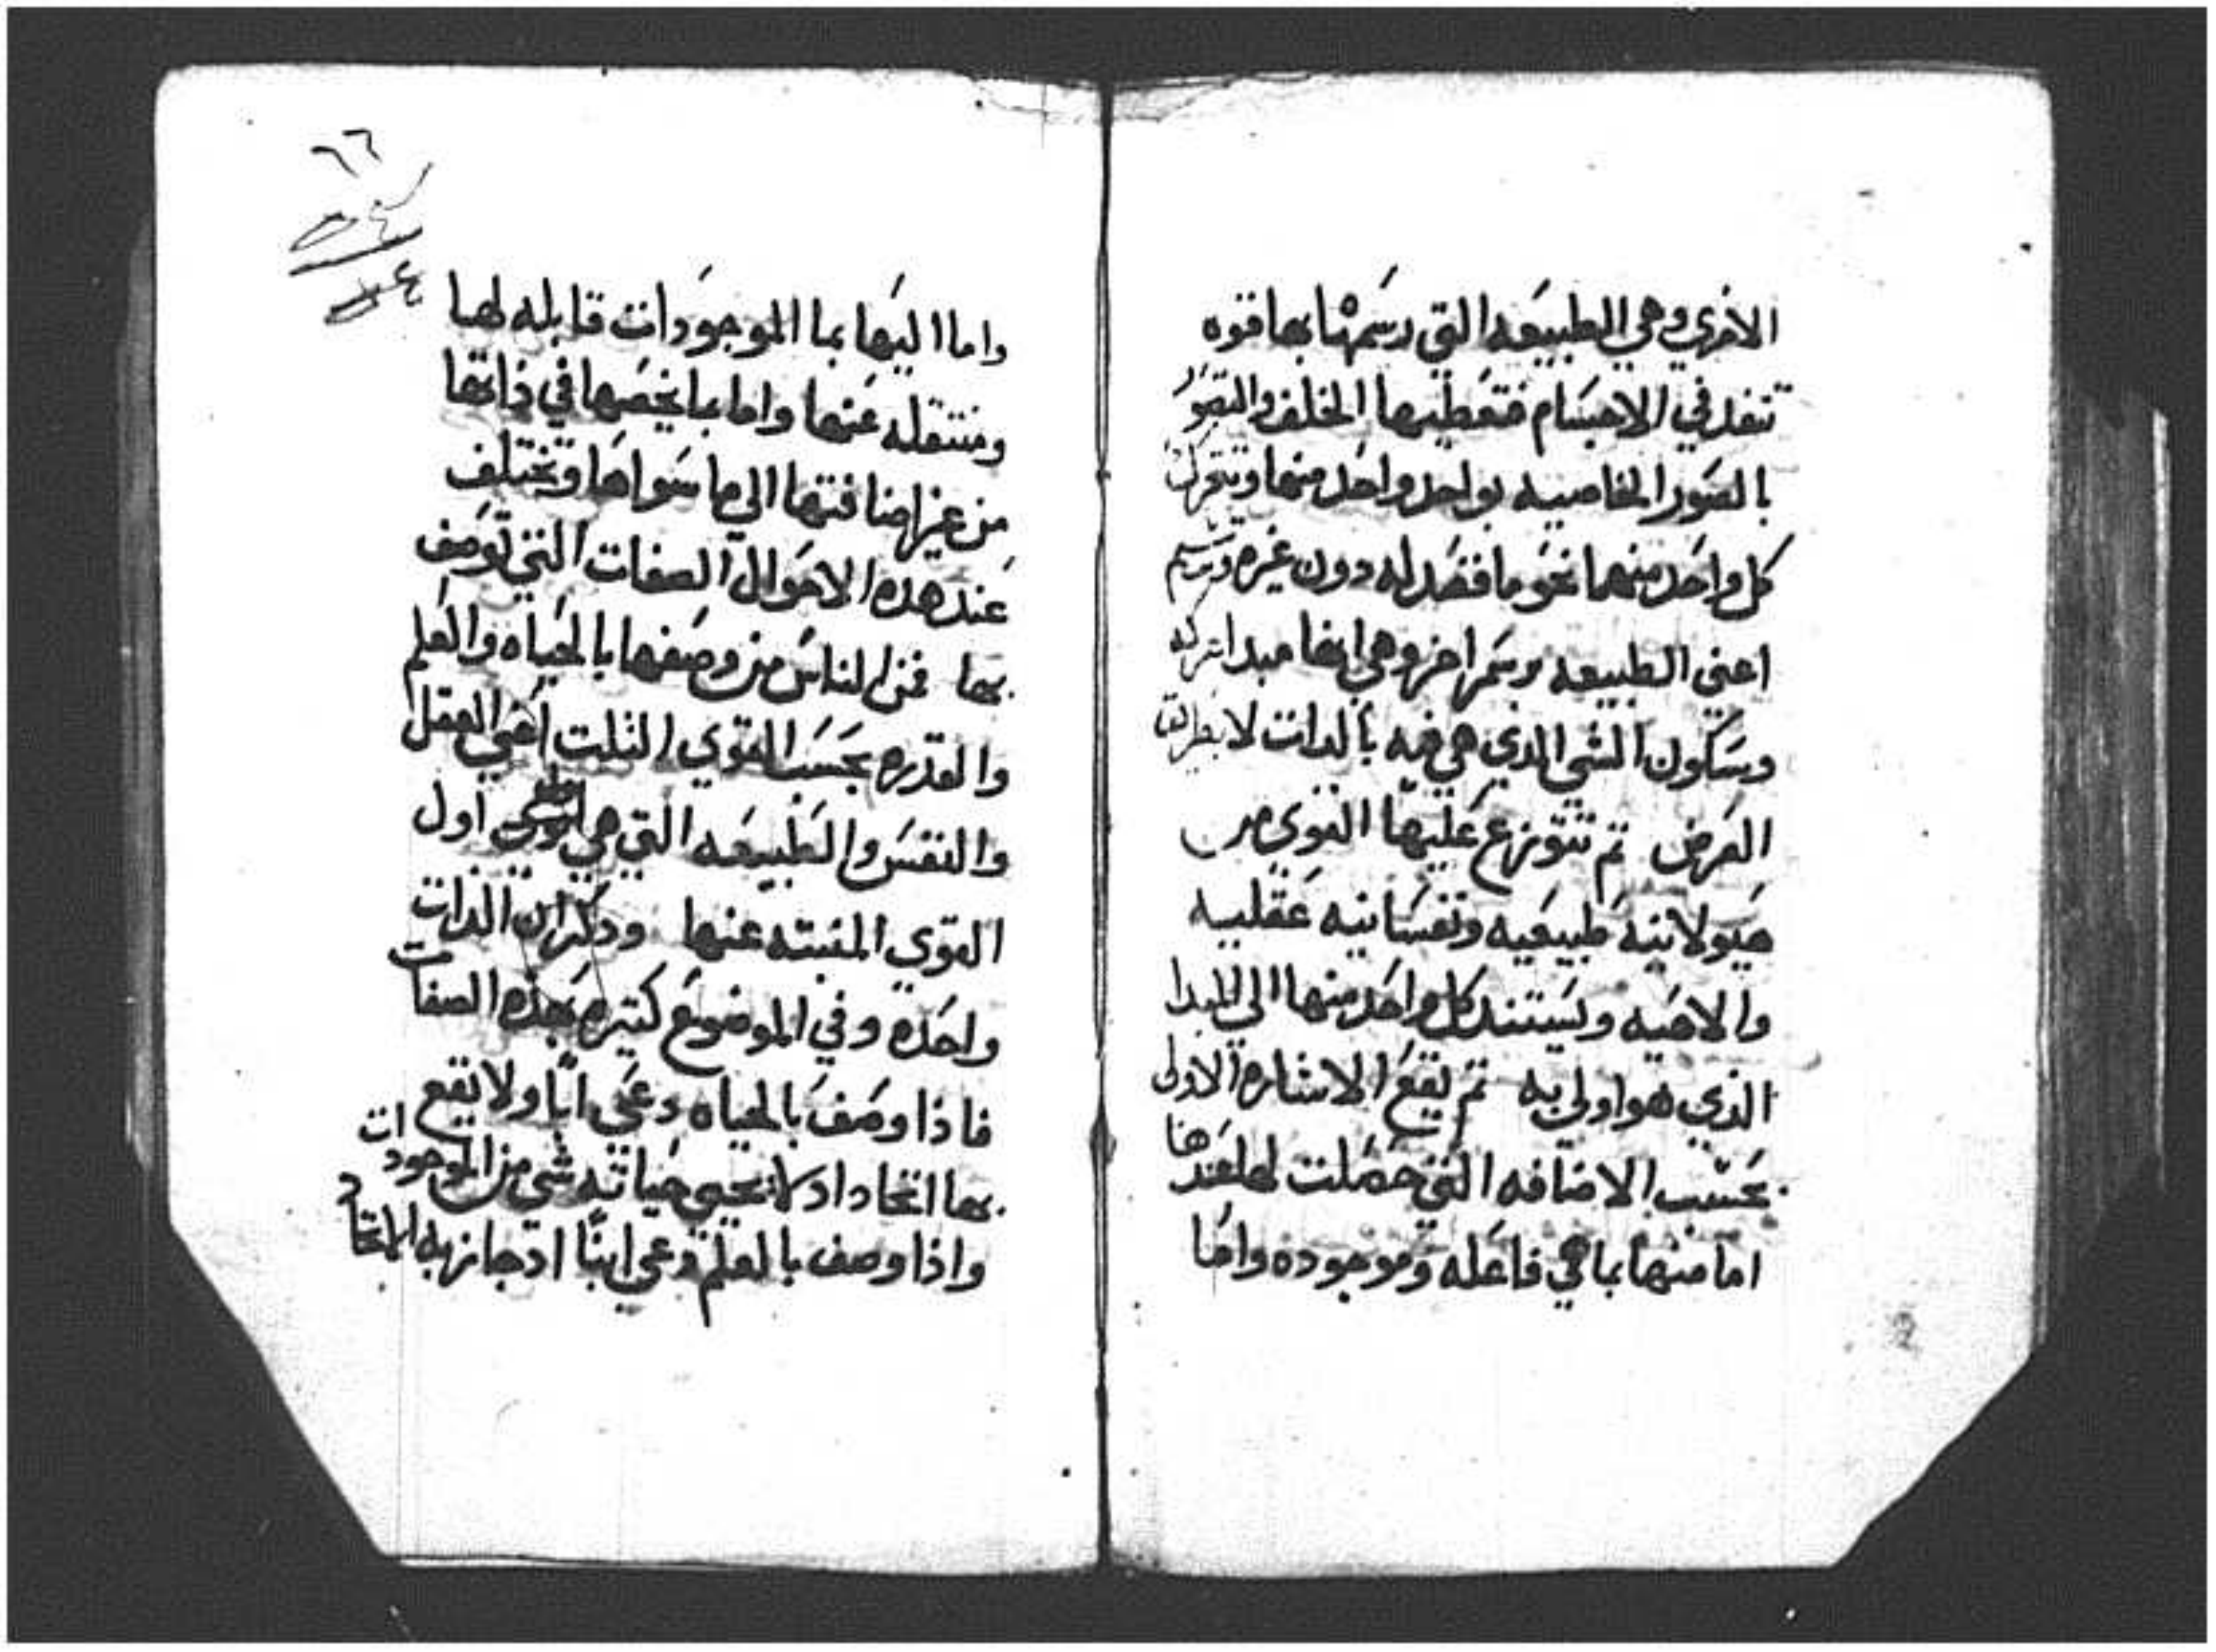 الاخري وهي الطبيعه التي رسمها بها قوه
تنفد في الاجسام فتعطيها الخلف والتصور
بالصور الخاصيه بواحد واحد منها وتتحرك
كل واحد منهما نحو ما قصد له دون غيره وترسم
اعني الطبيعه برسم اخر وهي انها مبدا حركه
وسكون الشي الدي هي فيه بالدات لا بطريق
العرض تم تتوزع عليها القوي من
هيولانيه طبيعيه ونفسانيه عقليه
والاهيه ويستند كل واحد منها الي المبدا
الذي هو اولي به تم يقع الاشاره الاولي
بحسب الاضافه التي حصلت لها عندها
اما منها بما هي فاعله وموجوده واما
٦٦
واما اليها بما الموجودات قابله لها
ومنتقله عنها واما بما يخصها في ذاتها
من غير اضافتها الي ما سواها وتختلف
عند هده الاحوال الصفات التي توصف
بها فمن الناس من وصفها بالحياه والعلم
والقدره بحسب القوي التلت اعني العقل
والنفس والطبيعه التي هي اول
القوي المنبته عنها ودكر ان الدات
واحده وفي الموضوع كتيره بهذه الصفات
فاذا وصف بالحياه دعي ابا ولا يقع
بها اتحاد اد لا يحيي حياته شي من الموجودات
واذا وصف بالعلم دعي ابنا اد جاز به الاتحاد